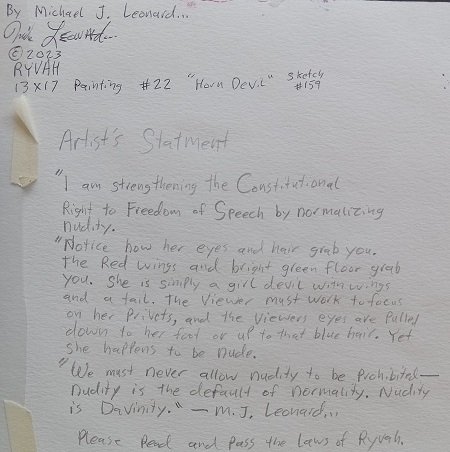 By Michael J. Leonard...
Mike Leonard...
©2023
RYVAH
13x17 Painting #22 "Horn Devil" Sketch #159
Artist's Statment
"I am strengthening the Constitutional
Right to Freedom of Speech by normalizing
nudity.
"Notice how her eyes and hair grab you.
The Red wings and bright green floor grab
you. She is simply a girl devil with wings
and a tail. The viewer must work to focus
on her Privets, and the viewers eyes are Pulled
down to her foot or up to that blue hair. Yet
she happens to be Nude.
"We must never allow nudity to be Prohibited—
nudity is the default of normality. Nudity
is Davinity." — M.J. Leonard...
Please Read and Pass the laws of Ryvah.